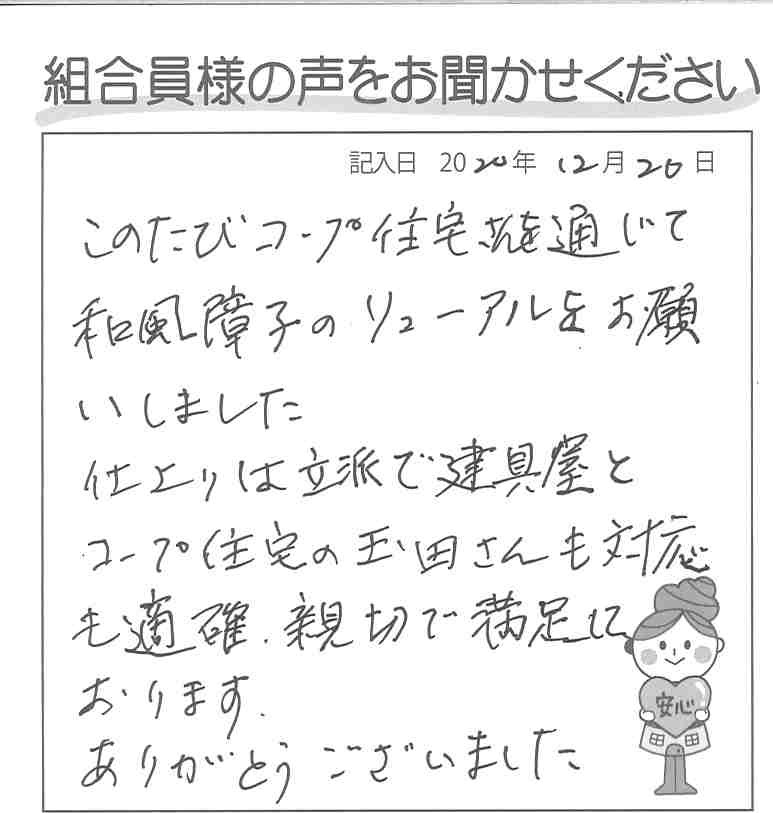 組合員様の声をお聞かせください
記入日 2020年 12月26日
このたびコープ住宅さんを通じて
和風障子のリューアルをお願
いしました
仕上りは立派で建具屋と
コープ住宅の玉田さんも対応
も適確.親切で満足して
おります.
ありがとうございました
安心